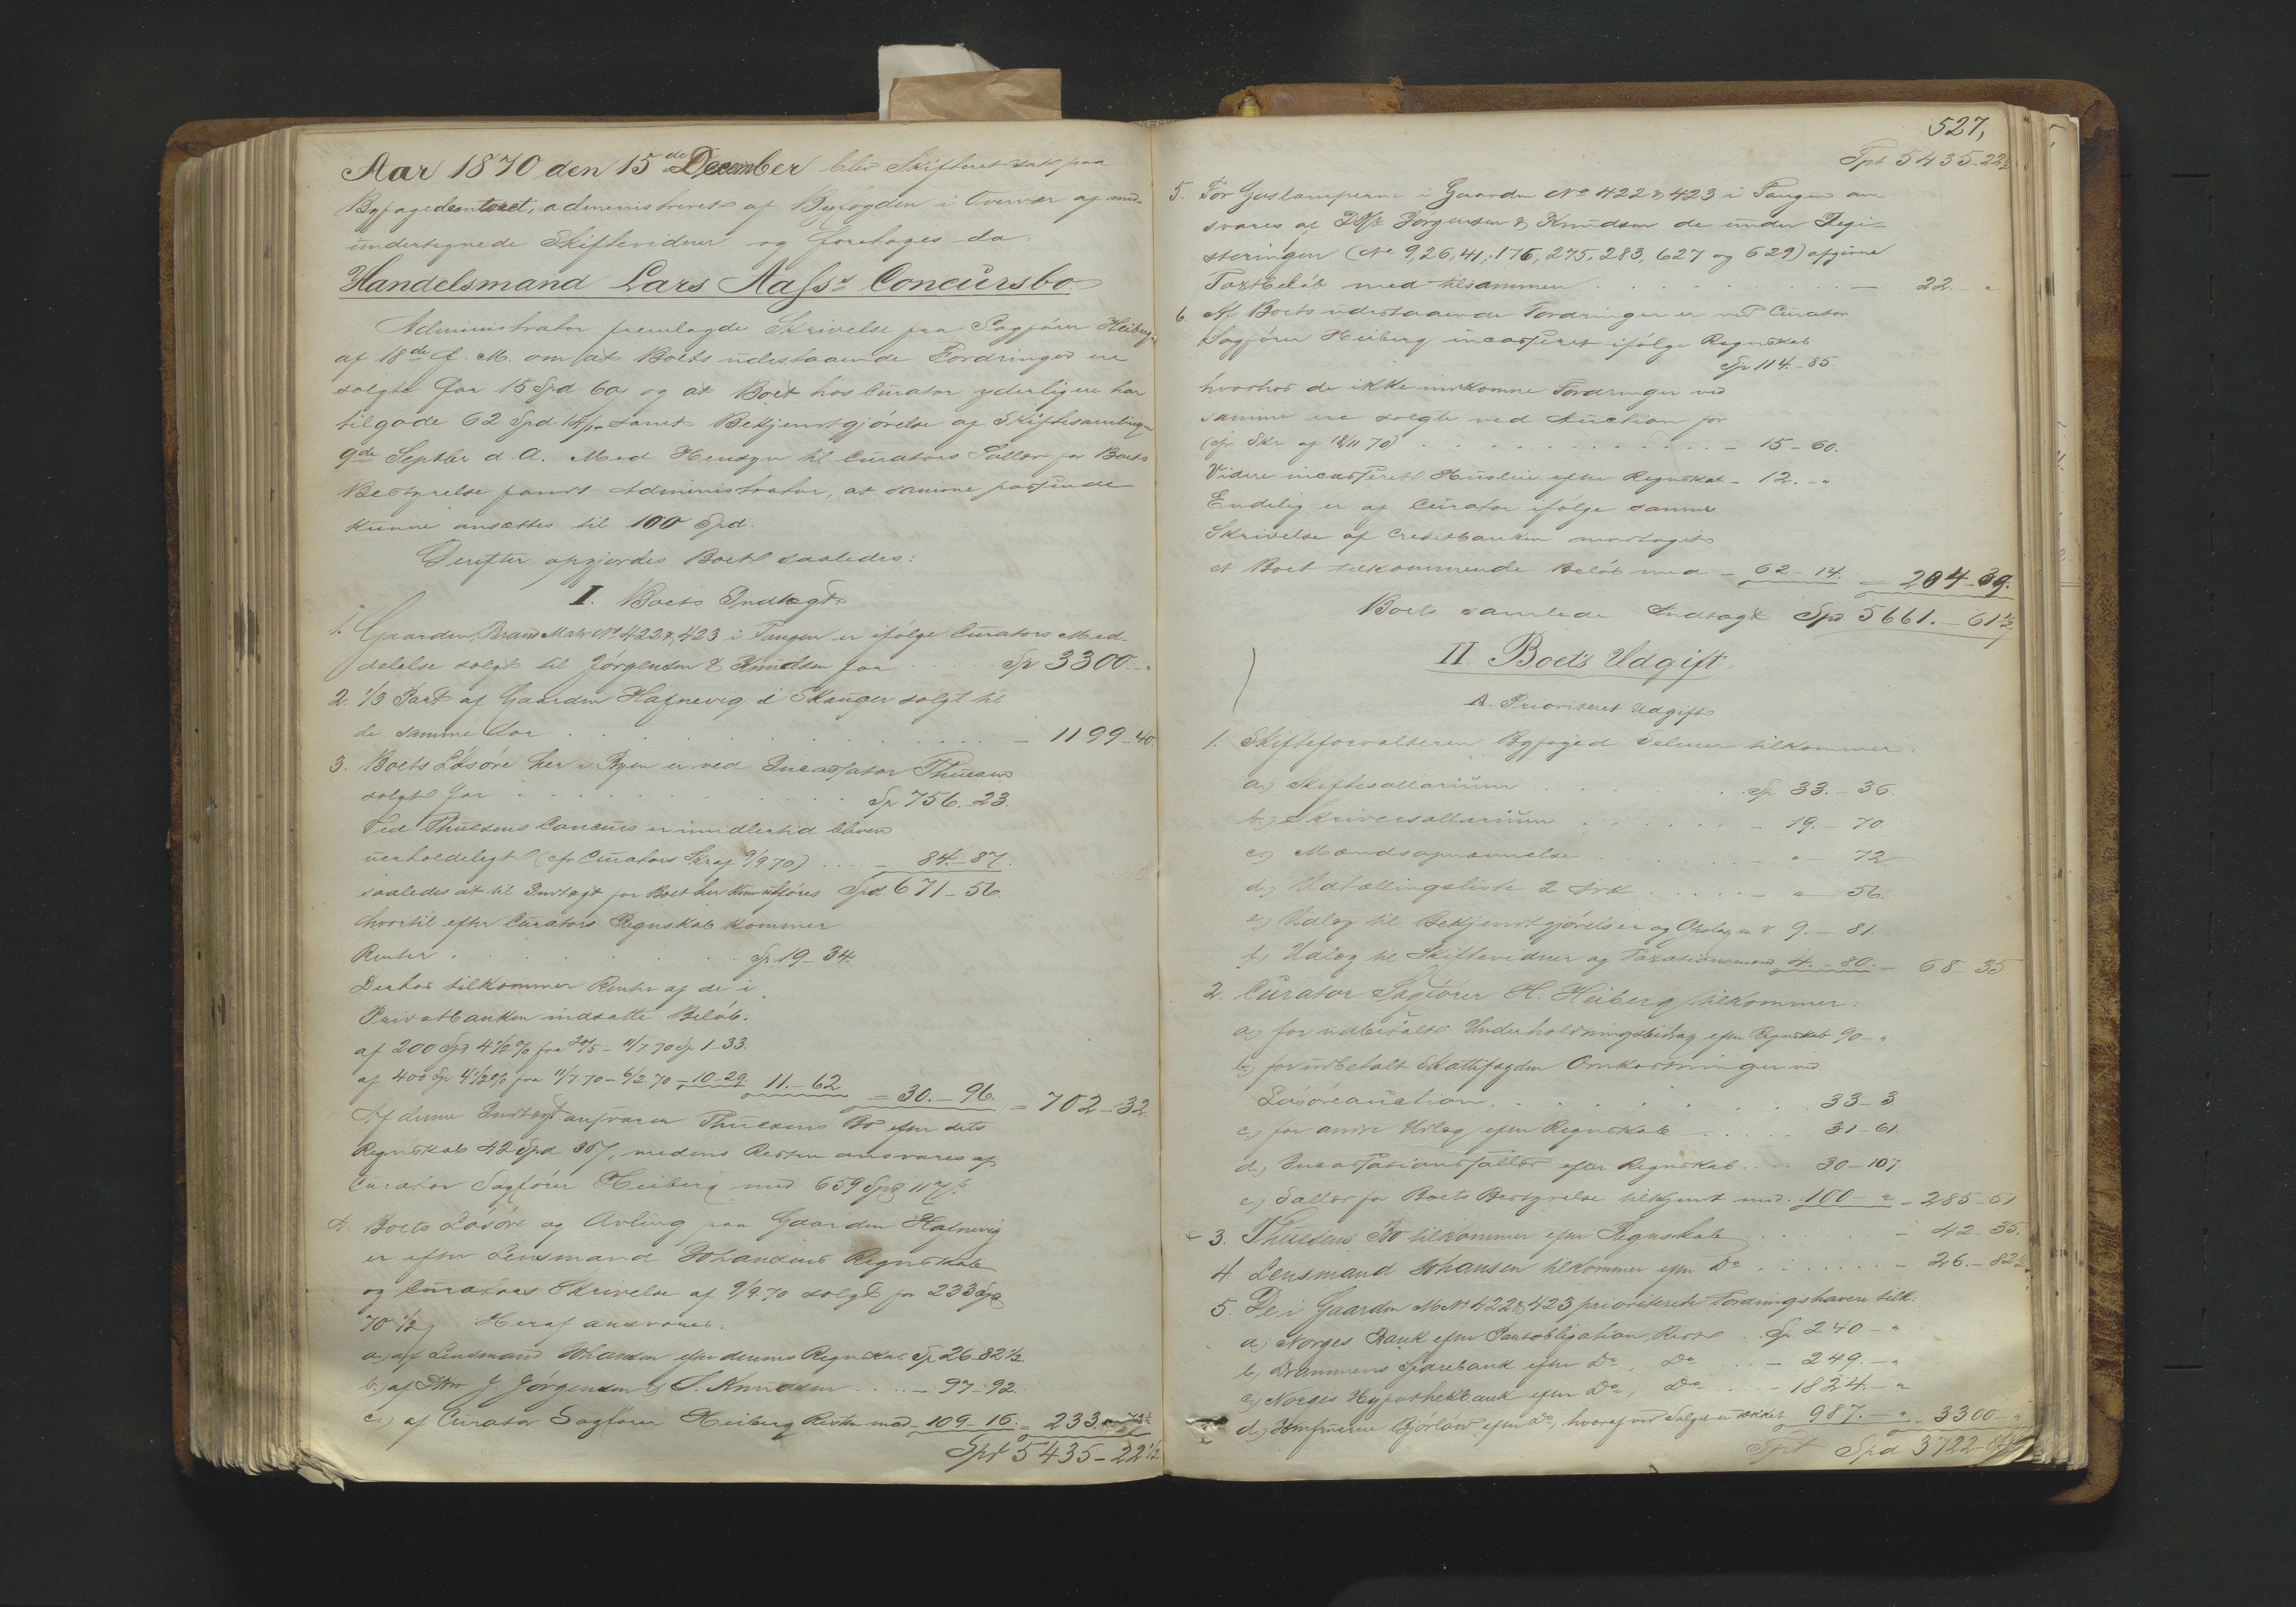 Aar 1870 den 15de December blev Skifteret sat paa
Byfogedcontoret, administreret af Byfogden i Overvær af med-
undertegnede Skiftevidner og foretoges da:
Handelsmand Lars Aass's Concursbo
Administrator fremlagde Skrivelse fra Sagfører Heiberg
af 18de f. M. om at Boets udestaaende Fordringer ere
solgte for 15 Spd 60 s og at Boet hos Curator yderligere har
tilgode 62 Spd 14 s, samt Bekjendtgjørelse af Skiftesamlingen
9de Septbr d. A. Med Hensyn til Curators Sallær for Boets
Bestyrelse fandt Administrator, at samme passende
kunne ansættes til 100 Spd.
Derefter opgjordes Boet saaledes:
I. Boets Indtægt:
1. Gaarden, Brand Matr No 422 & 423 i Tangen er ifølge Curators Med-
delelse solgt til Jørgensen & Knudsen for Sp 3300.-"
2. 1/3 Part af Gaarden Hafnevig i Skouger solgt til
de samme for - 1199-40.
3. Boets Løsøre her i Byen er ved Incassator Thuesen
solgt for Sp 756.-23.
Ved Thuesens Concurs er imidlertid bleven
uerholdeligt (cfr Curators Skr af 9/9 70) - 84.-87.
saaledes at til Indtægt for Boet her kun udføres Spd 671-56.
hvortil efter Curators Regnskab kommer
Renter Sp 19-34.
Derhos tilkommer Renter af de i
Privatbanken indsatte Beløb:
af 200 Spd 4 1/2 % fra 20/5 - 11/7 70 Sp 1-33.
af 400 Sp 4 1/2 % fra 11/7.70 - 6/2.70 - 10-29. 11.-62 = 30.-96. = 702-32.
Af denne Indtægt ansvarer Thuesens Bo efter dets
Regnskab 42 Spd 35 s, medens Resten ansvares af
Curator Sagfører Heiberg med 659 Spd 117 s.
4. Boets Løsøre og Avling paa Gaarden Hafnevig
er efter Lensmand Johansens Regnskab
og Curators Skrivelse af 9/9.70 solgt for 233 Spd
70 1/2 s Heraf ansvares:
a.) af Lensmand Johansen efter dennes Regnskab Sp 26-82 1/2.
b.) af J. Jørgensen & S. Knudsen - 97-92.
c.) af Curator Sagfører Heiberg Resten med - 109-16. = 233.-70 1/2
Spt 5435-22 1/2
527,
Spt 5435-22 1/2
5. For Gaslamperne i Gaarden No 422 & 423 i Tangen an-
svares af Jørgensen & Knudsen de under Regi-
steringen (No 9, 26, 41, 176, 275, 283, 627 og 629) opgivne
Taxtbeløb med tilsammen - 22.-"
6. Af Boets udestaaende Fordringer er ved Curator
Sagfører Heiberg incasseret ifølge Regnskab
Sp 114.-85
hvorhos de ikke indkomne Fordringer ved
samme ere solgte ved Auction for
(cfr Skr af 18/11 70) - 15-60.
Videre incasseret Husleie efter Regnskab - 12.-"
Endelig er af Curator ifølge samme
Skrivelse af Creditbanken modtaget
et Boet tilkommende Beløb med - 62-14. = 204-39.
Boets samlede Indtægt Spd 5661.-61 1/2
II. Boets Udgift.
A. Prioriteret Udgift
1. Skifteforvalteren Byfoged Selmer tilkommer:
a.) Skiftesallarium Sp 33.-36.
b.) Skriversallarium - 19.-70
c.) Mændsopnævnelse - "-72
d.) Udtællingsliste 2 Ark - "-56.
e.) Udlæg til Bekjendtgjørelser og Opslag m v 9.-81.
f.) Udlæg til Skiftevidner og Taxationsmænd 4.-80. - 68-35
2. Curator Sagfører H. Heiberg tilkommer:
a.) for udbetalt Underholdningsbidrag efter Regnskab 90-"
b.) for udbetalt Skattefogden Omkostninger ved
Løsøreauction 33-3
c.) for andre Udlæg efter Regnskab 31-61.
d.) Incassationssallær efter Regnskab 30-107.
e.) Sallær for Boets Bestyrelse tilkjendt med 100-" - 285-51
3. Thuesens Bo tilkommer efter Regnskab - 42-35.
4 Lensmand Johansen tilkommer efter Do - 26.-82 1/2
5. De i Gaarden M No 422 & 423 prioriterede Fordringshavere tilk:
a.) Norges Bank efter Pantobligation, Rest Sp 240-"
b.) Drammens Sparebank efter Do, Do - 249.-"
c.) Norges Hypothekbank efter Do, Do - 1824.-"
d.) Jomfruerne Bjørlow efter Do, hvoraf ved Salget er dækket 987.-" - 3300-"
Spt Spd 3722-